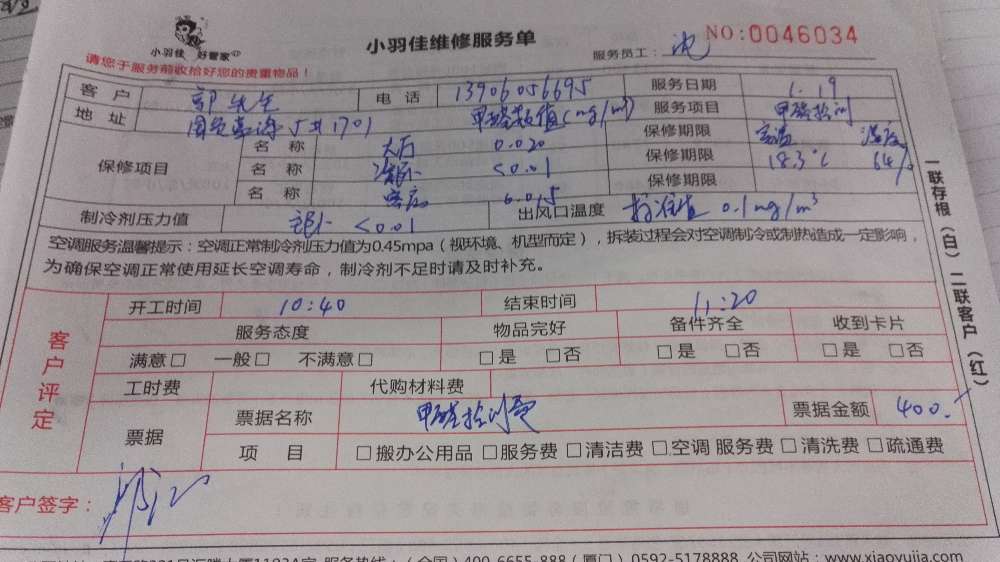 小羽佳 好管家
小羽佳维修服务单
服务员工：
NO:0046034
请您于服务前收拾好您的贵重物品！
客户 郭先生 电话 13906056695 服务日期 1.19
地址 5#1701 甲醛数值(mg/m³) 服务项目 甲醛检测
保修项目 名称 大厅 0.020 保修期限 室温 湿度
名称 <0.01 保修期限 18.3℃ 64%
名称 客房 0.015 保修期限
制冷剂压力值 <0.01 出风口温度 标准值 0.1mg/m³
空调服务温馨提示：空调正常制冷剂压力值为0.45mpa（视环境、机型而定），拆装过程会对空调制冷或制热造成一定影响，
为确保空调正常使用延长空调寿命，制冷剂不足时请及时补充。
客户评定
开工时间 10:40 结束时间 11:20
服务态度 物品完好 备件齐全 收到卡片
满意□ 一般□ 不满意□ □是 □否 □是 □否 □是 □否
工时费 代购材料费
票据 票据名称 甲醛检测费 票据金额 400.-
项目 □搬办公用品 □服务费 □清洁费 □空调 服务费 □清洗费 □疏通费
客户签字：
一联存根（白）二联客户（红）
服务热线：（全国）400-6655-888（厦门）0592-5178888 公司网站：www.xiaoyujia.com